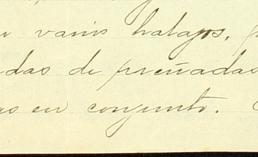 varios hatajos,
das de preñadas
as en conjunto.